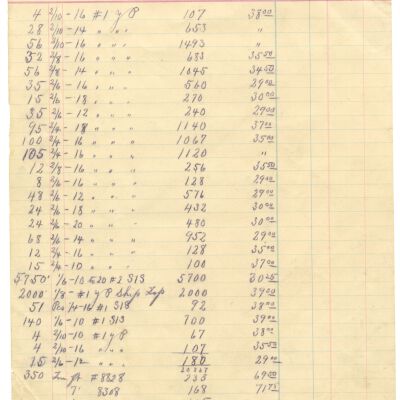 4 2/10-16 #1 y P 107 38 00
28 2/10-14 " " " 653 "
56 2/10-16 " " " 1493 "
32 2/8-16 " " " 683 35 50
56 2/8-14 " " " 1045 34 50
35 2/6-16 " " " 560 29 00
15 2/6-18 " " " 270 30 00
35 2/6-12 " " " 240 29 00
95 2/4-18 " " " 1140 37 00
100 2/4-16 " " " 1067 35 00
105 2/4-16 " " " 1120 "
12 2/8-16 " " " 256 35 50
8 2/6-16 " " " 128 29 00
48 2/6-12 " " " 576 29 00
24 2/6-18 " " " 432 30 00
24 2/6-20 " " " 480 30 00
68 2/6-14 " " " 952 29 00
12 2/4-16 " " " 128 35 00
15 2/4-10 " " " 100 37 00
5750' 1/6-10 #2 S1S 5700
2000 1/8- #1 y P Ship Lap 2000 39 00
51 Pcs 1/4-16 #1 S1S 92 38 00
140 1/6-10 #1 S1S 700 39 00
4 2/10-10 #1 y P 67 38 00
4 2/10-16 " " " 107 35 50
15 2/6-12 " " " 180 29 00
350 #8828 235 69 00
8308 168